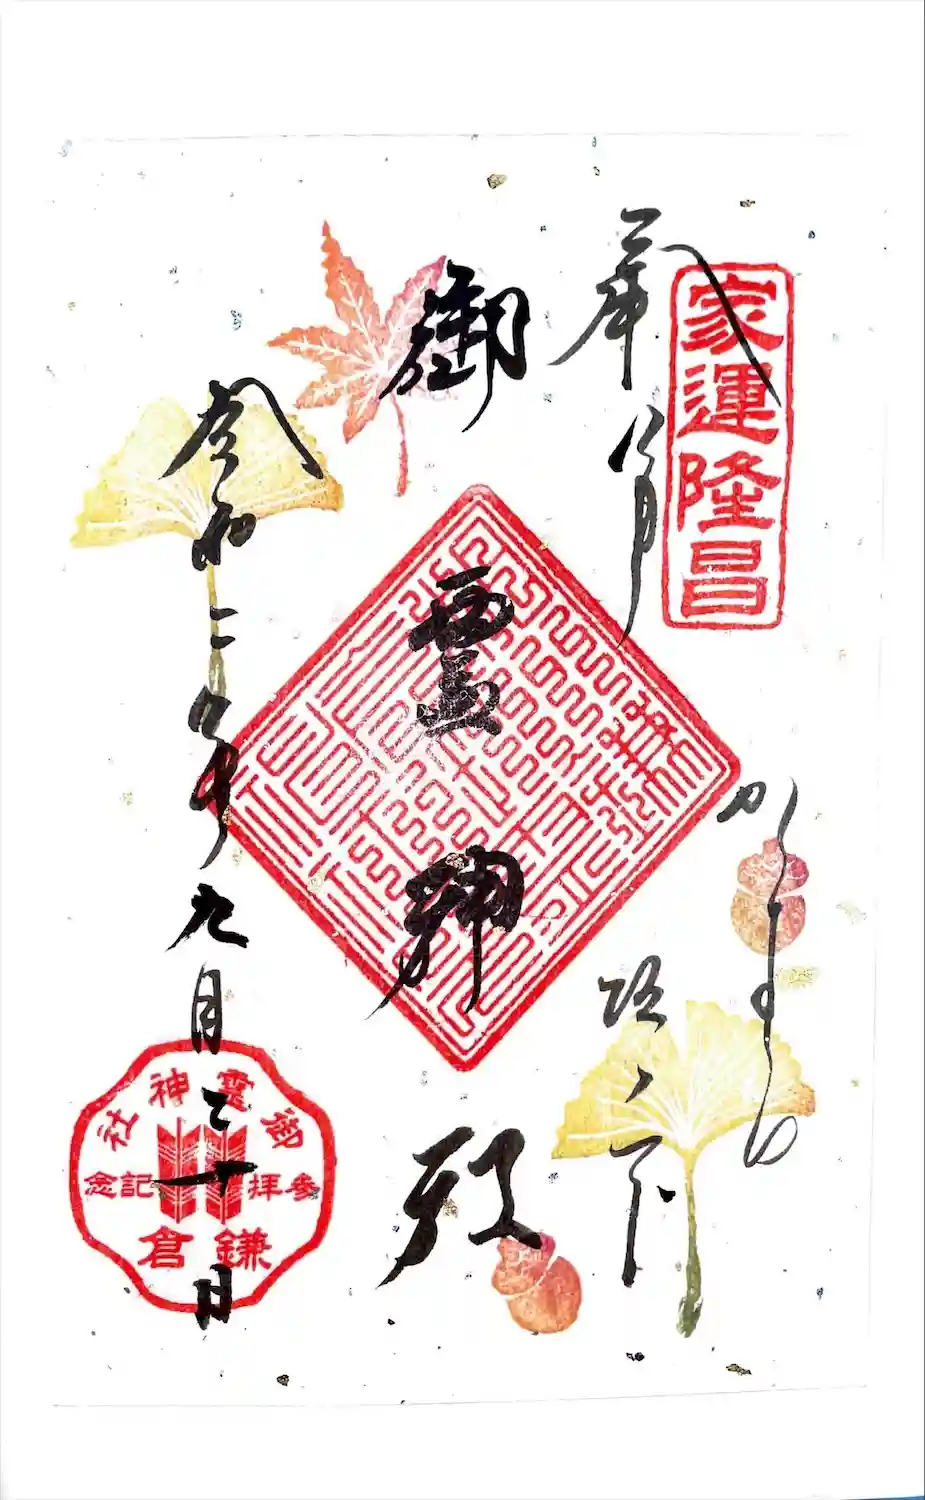 家運隆昌
奉拝
かまくら
坂ノ下
御霊神社
令和二年九月二十日
御霊神社
参拝記念
鎌倉